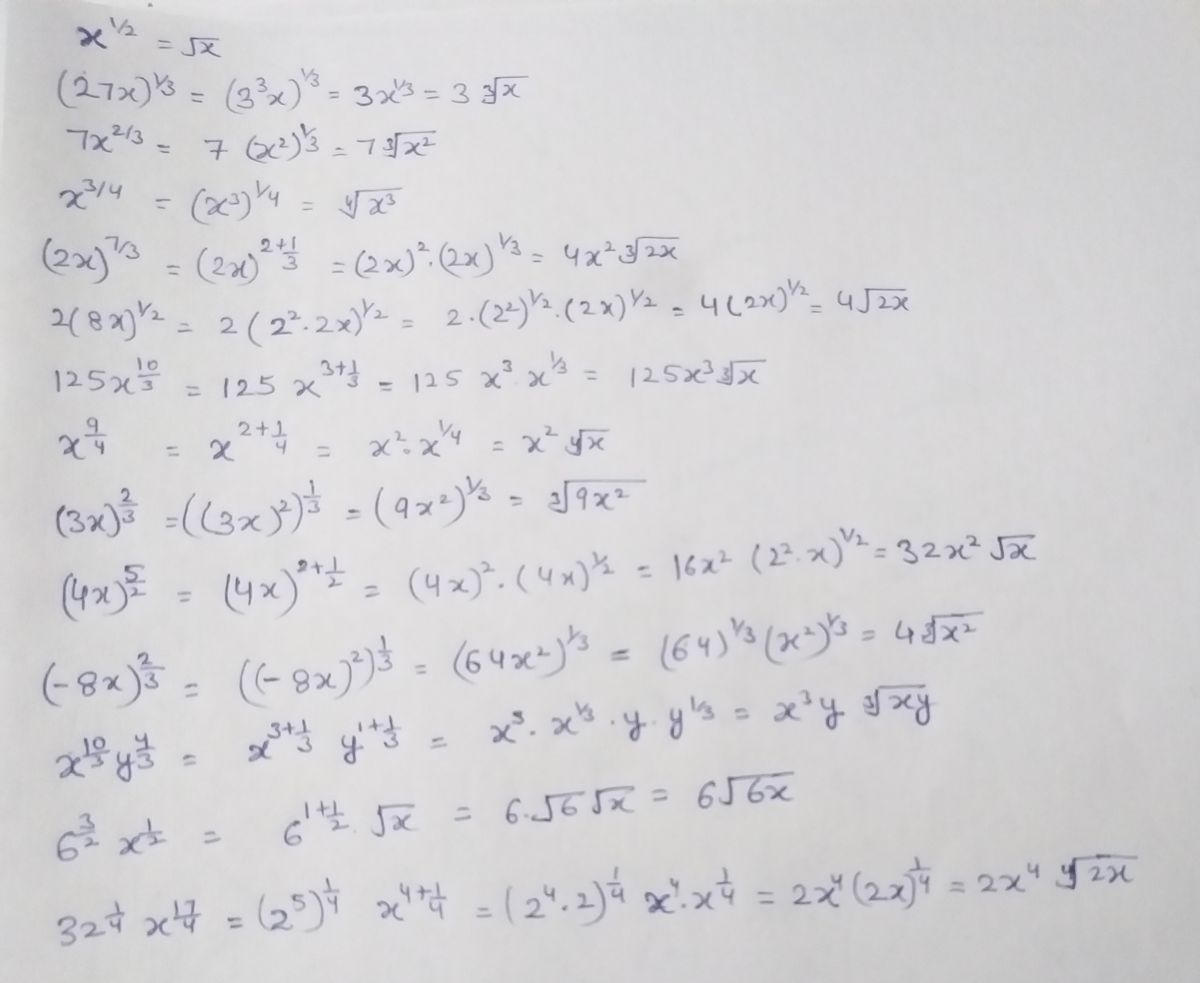 x^{1/2} = √x
(27x)^{1/3} = (3^3x)^{1/3} = 3x^{1/3} = 3 ∛x
7x^{2/3} = 7 (x^2)^{1/3} = 7∛(x^2)
x^{3/4} = (x^3)^{1/4} = ∜(x^3)
(2x)^{7/3} = (2x)^{2+1/3} = (2x)^2.(2x)^{1/3} = 4x^2 ∛(2x)
2(8x)^{1/2} = 2(2^2.2x)^{1/2} = 2.(2^2)^{1/2}.(2x)^{1/2} = 4(2x)^{1/2} = 4√(2x)
125x^{10/3} = 125 x^{3+1/3} = 125 x^3.x^{1/3} = 125x^3 ∛x
x^{9/4} = x^{2+1/4} = x^2.x^{1/4} = x^2 ∜x
(3x)^{2/3} = ((3x)^2)^{1/3} = (9x^2)^{1/3} = ∛(9x^2)
(4x)^{5/2} = (4x)^{2+1/2} = (4x)^2.(4x)^{1/2} = 16x^2 (2^2.x)^{1/2} = 32x^2 √x
(-8x)^{2/3} = ((-8x)^2)^{1/3} = (64x^2)^{1/3} = (64)^{1/3}(x^2)^{1/3} = 4∛(x^2)
x^{10/3} y^{4/3} = x^{3+1/3} y^{1+1/3} = x^3.x^{1/3}.y.y^{1/3} = x^3y ∛(xy)
6^{3/2} x^{1/2} = 6^{1+1/2}.√x = 6.√6√x = 6√(6x)
32^{1/4} x^{17/4} = (2^5)^{1/4} x^{4+1/4} = (2^4.2)^{1/4} x^4.x^{1/4} = 2x^4(2x)^{1/4} = 2x^4 ∜(2x)